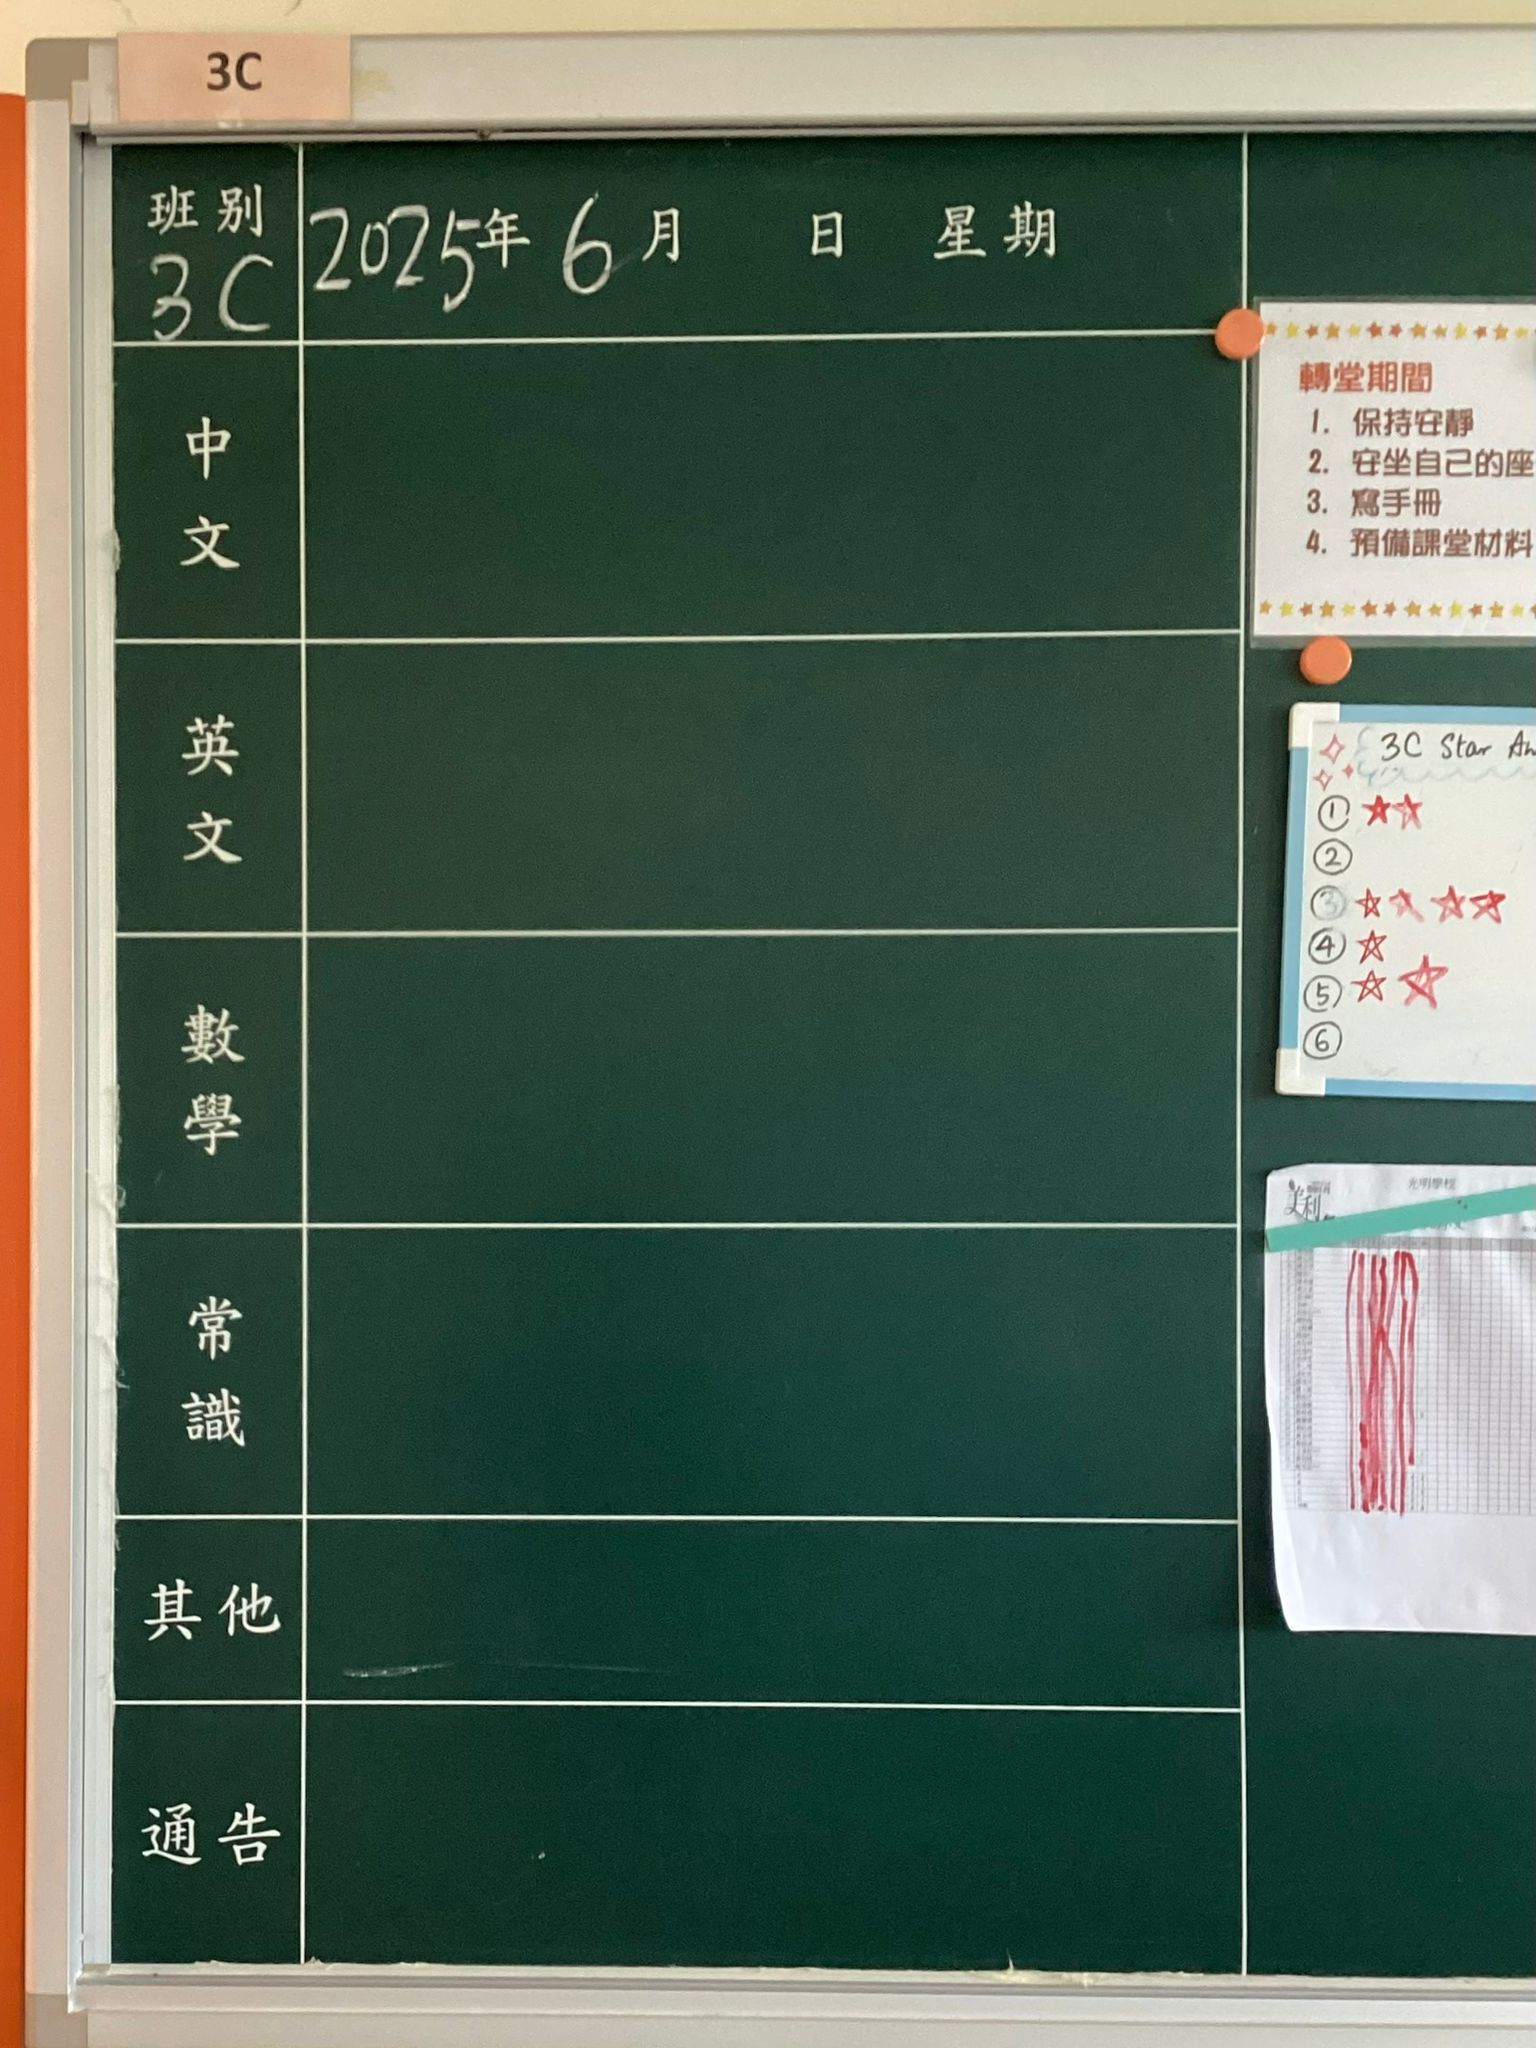 3C
班別
3C
2025年 6月 日 星期
中文
英文
數學
常識
其他
通告
轉堂期間
1. 保持安靜
2. 安坐自己的座
3. 寫手冊
4. 預備課堂材料
3C Star
①
②
③
④
⑤
⑥
光明學校
美利